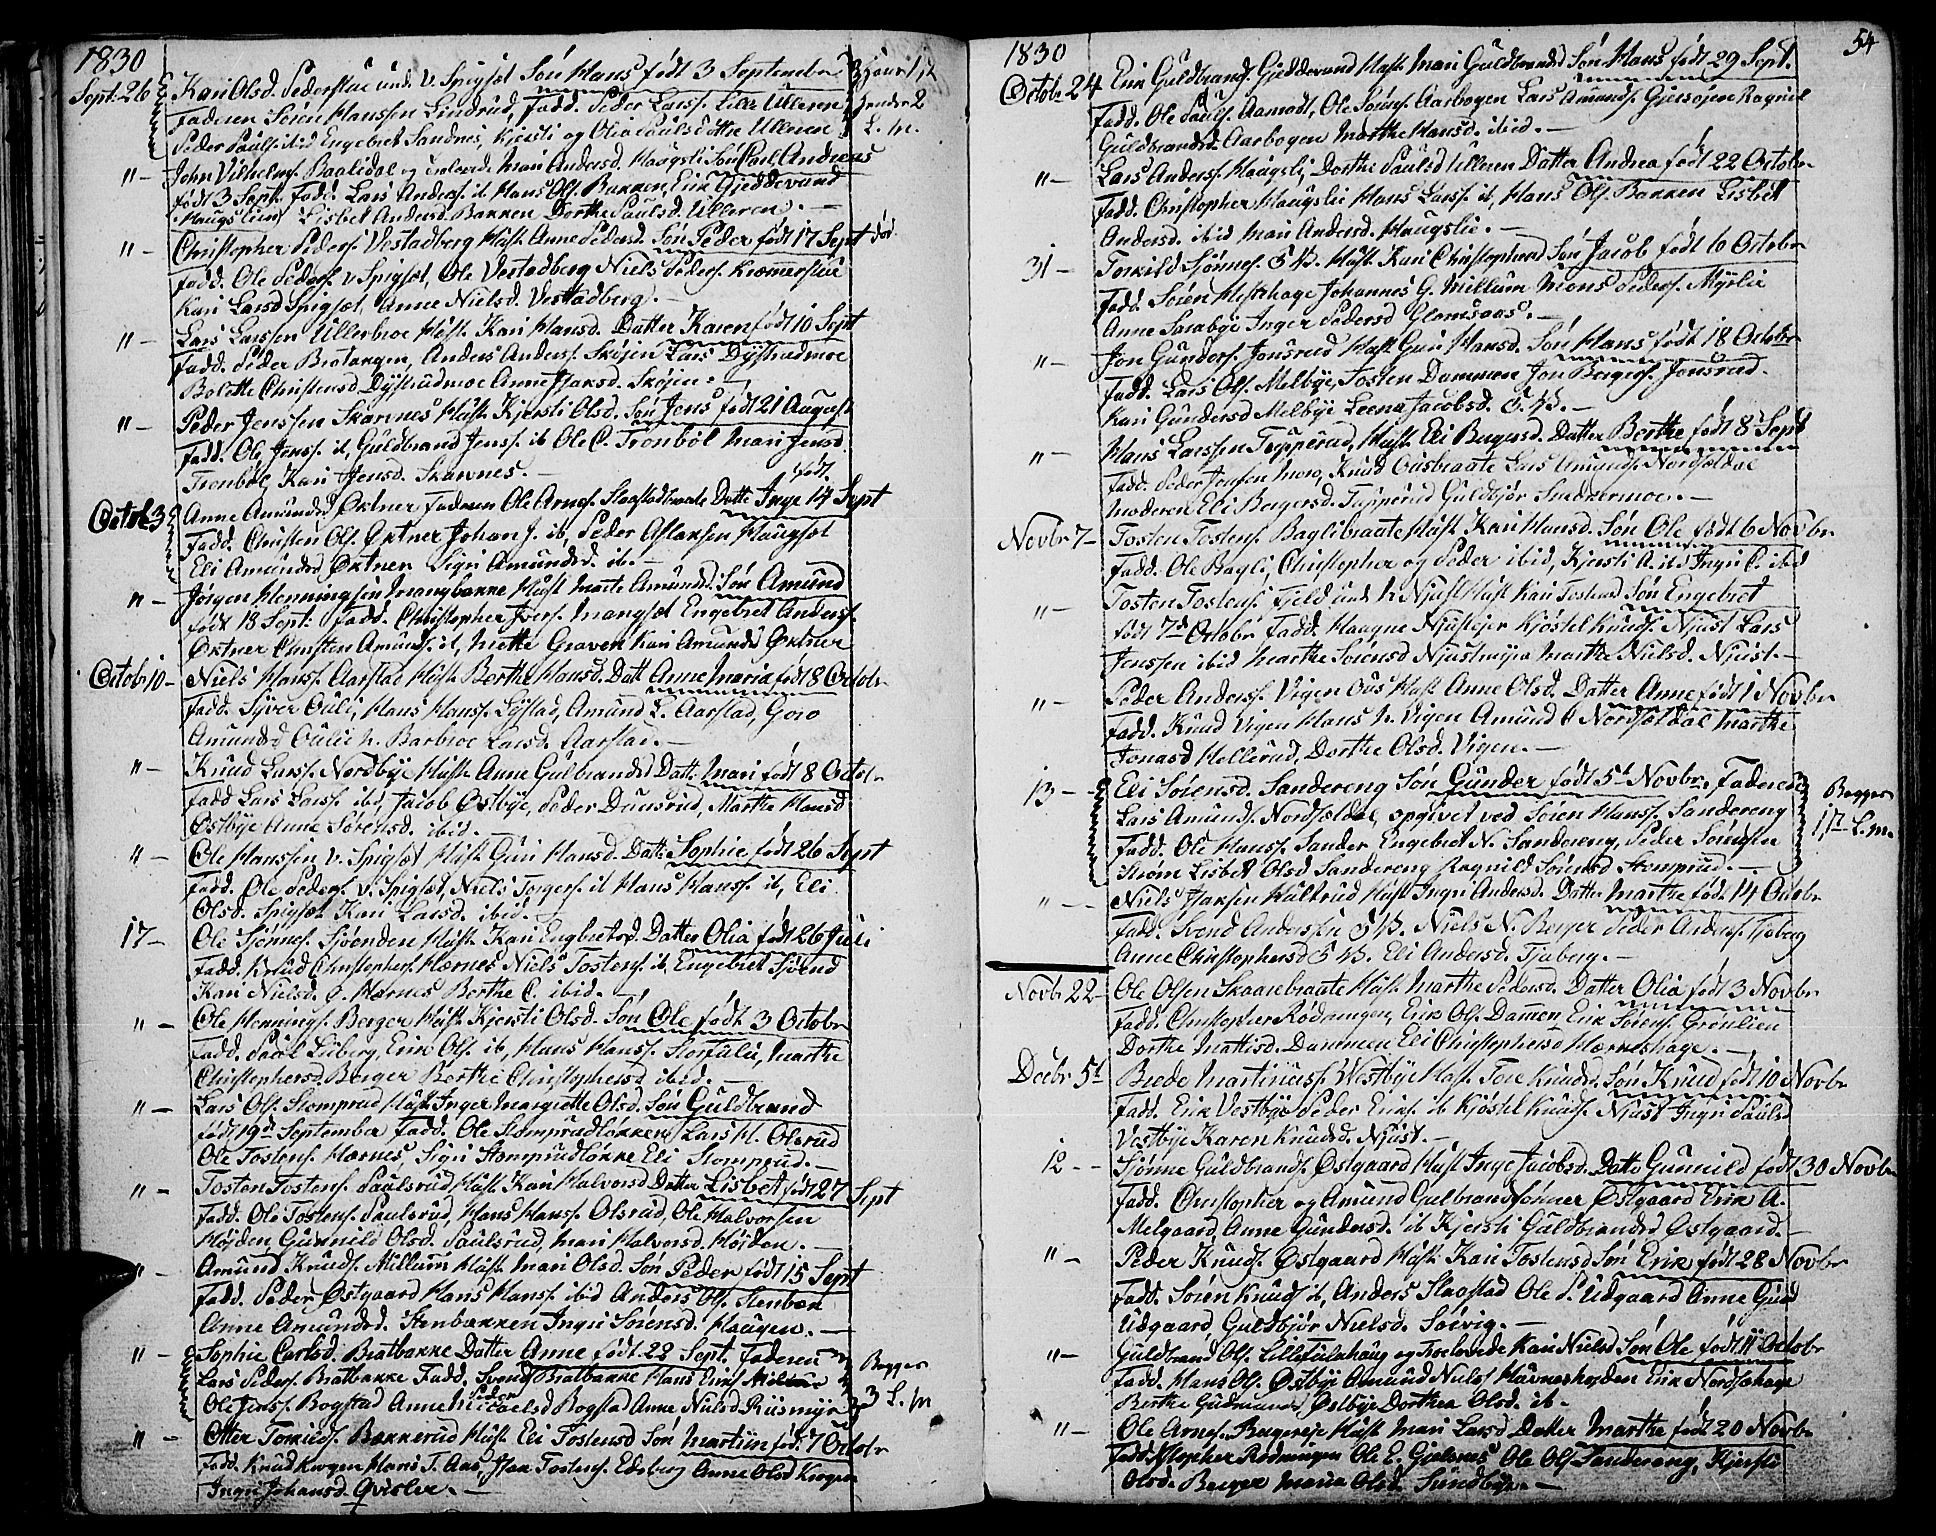 1830
Sept. 26 Kari Olsd. Pederstue und. v. Spigset Søn Hans født 3 September
Faderen Søren Hanssen Lindrud, Fadd. Peder Larss. Lille Ulleren
Peder Paulss. ibid Engebret Sandnes, Kjersti og Olia Paulsdøttre Ulleren
2 L. M.
" - John Vilhelms. Baalidal og Mari Andersd. Haugsli Søn Carl Andreas
født 3 Sept. Fadd. Lars Anders. ib Hans Ols. Bakken, Erik Gjeddevund
Haugslien Lisbet Andersd. Bakken Dorthe Paulsd. Ulleren. -
" - Christopher Peders. Vestadberg Hust. Anne Pedersd. Søn Peder født 17 Sept
Fadd. Ole Peders. v. Spigset, Ole Vestadberg Niels Peders. Kræmerstue
Kari Larsd Spigset, Anne Nielsd. Vestadberg. -
" - Lars Larssen Ullerbroe Hust. Kari Hansd. Datter Karen født 10 Sept
Fadd. Peder Brotangen, Anders Anders. Skøjen Lars Dystrudmoe
Bolette Christensd Dystrudmoe Anne Isaksd. Skøjen. -
" - Peder Jenssen Skarnes Hust. Kjersti Olsd. Søn Jens født 21 August
Fadd. Ole Jenss. ib, Guldbrand Jenss. ib Ole C. Tronbøl Mari Jensd.
Tronbøl, Kari Jensd. Skarnes. -
født
Octob. 3 Anne Amundsd Øktner Faderen Ole Arnes. Slaastadbraate Datte Inge 14 Sept
Fadd. Christen Ols. Øktner Johan J. ib, Peder Aslaksen Haugset
Eli Amundsd Øktner Sigri Amundsd. ib. -
" - Jørgen Henningsen Mangbakke Hust Marte Amundsd. Søn Amund
født 18 Sept. Fadd. Christopher Ivers. Mangset Engebret Anders.
Øktner Christen Amunds. ib, Mette Graven Kari Amundsd Øktner
Octob 10 - Niels Hans. Aarstad Hust Berthe Hansd. Datt. Anne Maria født 8 Octobr
Fadd. Syver Ouli, Hans Hanss. Lystad, Amund L. Aarstad, Goro
Amundsd Oulie Barbroe Larsd. Aarstad. -
" - Knud Larss. Nordbye Hust. Anne Gulbrandsd Datt. Mari født 8 Octobr
Fadd Lars Larss. ibid, Jacob Østbye, Peder Duusrud, Martha Hansd
Østbye Anne Sørensd. ibid.
" - Ole Hanssen v. Spigset Hust Guri Hansd. Datt. Sophie født 26 Sept
Fadd. Ole Peders. v. Spigset, Niels Torgers. ib Hans Hanss. ib, Eli
Olsd. Spigset Kari Larsd. ibid. -
17 - Ole Sjønnes. Sjøenden Hust. Kari Engbretsd. Datter Olia født 26 Juli
Fadd. Knud Christophers. Hærnes Niels Tostens. ib. Engebret Sjøend
Kari Nielsd. Ø. Hærnes Berthe C. ibid.
" - Ole Hennings. Berger Hust Kjersti Olsd. Søn Ole født 3 Octobr
Fadd. Paul Liberg, Erik Ols. ib, Hans Hanss. Storfulu, Marthe
Christophersd. Berger Berthe Christophersd ibid. -
" - Lars Ols. Stomprud Hust. Inger Margrette Olsd. Søn Guldbrand
født 19d September Fadd. Ole Stomprudløkken, Lars H. Olsrud
Ole Tostens. Hærnes Sigri Stomprudløkke Eli Stomprud. -
" - Tosten Tostens. Paulsrud Hust Kari Halvorsd Datter Lisbet født 27 Sept
Fadd. Ole Tostens. Paulsrud, Hans Hanss. Olsrud, Ole Halvorsen
Højden Gunnild Olsd. Paulsrud, Mari Halvorsd. Højden. -
" - Amund Knuds. Millum Hust Mari Olsd. Søn Peder født 15 Sept
Fadd. Peder Østgaard Hans Hanss. ibid Anders Ols. Stenbæk
Anne Amundsd. Stenbækken Ingri Sørensd. Haugen. -
" - Sophie Carlsd. Bratbakke Datter Anne født 22 Sept. Faderen
Lars Peders. Bratbakke Fadd. Svend Bratbakke Hans Eriks.
Peder
Ole Jenss. Bogstad Anne Miccaelsd Bogstad Anne Nielsd. Riismyr
3 L. M
" - Otter Bakkerud Hust Eli Tostensd Søn Martiin født 7 Octobr
Fadd. Knud Krogen Hans T. Aas Isak Tostens. Edsberg Anne Olsd Krogen
Ingri Johansd. Qvisler. -
1830
54
Octobr 24 Erik Guldbrands. Gjeddevund Hust. Mari Guldbrandsd Søn Hans født 29 Sept.
Fadd. Ole Pauls. Aamodt, Ole Sørens. Aarbogen Lars Amunds. Gjersøjen Ragnild
Guldbrandsd. Aarbogen Marthe Hansd. ibid. -
" - Lars Anders. Haugsli, Dorthe Paulsd Ulleren Datter Andrea født 22 October
Fadd. Christopher Haugslie Hans Larss. ib, Hans Ols. Bakken Lisbet
Andersd. ibid Mari Andersd. Haugslie. -
31 - Torkild Sjønnes. S.B. Hust. Kari Christophersd Søn Jacob født 6 October
Fadd. Søren Hestehage Johannes G. Millum Mons Peders. Myrlie
Anne Sæabye Inger Pedersd Glomsaas. -
" - Jon Gunders. Jonsrud Hust. Guri Hansd. Søn Hans født 18 Octobr
Fadd. Lars Ols. Melbye, Tosten Dammen Jon Bergers. Jonsrud.
Kari Gundersd Melbye Leena Jacobsd. S.B. -
" - Hans Larssen Tepperud, Hust. Eli Bergersd. Datter Berthe født 8d Sept
Fadd. Peder Jensen Moe, Knud Ousbraate Lars Amunds. Nordsetdal
Moderen Eli Bergersd. Tepperud Guldbjør Snekkermoe. -
Novbr 7 - Tosten Tostens. Baglibraate Hust. Kari Hansd. Søn Ole født 6 Novbr
Fadd. Ole Bagli, Christopher og Peder ibid, Kjersti A. ibid Ingri C. ibid
" - Tosten Tostens. Fjeld und. N. Njust Hust Kari Tostensd Søn Engebret
født 7d Octobr Fadd. Haagne Njustejer Kjøstel Knuds. Njust Lars
Jenssen ibid Marthe Sørensd Njustmyra Marthe Nielsd. Njust. -
" - Peder Anders. Vigen Ous Hust Anne Olsd. Datter Anne født 1 Novbr
Fadd. Knud Vigen Hans N. Vigen Amund Nordsetdal Marthe
Jonasd Hellerud, Dorthe Olsd. Vigen. -
13 - Eli Sørensd. Sandereng Søn Gunder født 5t Novbr. Faderen
Lars Amunds. Nordsetdal, opgivet ved Søren Hanss. Sandereng
Fadd. Ole Hans. Sander Engebret N. Sandereng, Peder Sørensen
Strøm Lisbet Olsd Sandereng Ragnild Sørensd Stomprud. -
L. M.
" - Niels Isaksen Hultrud Hust Ingri Andersd. Datter Marthe født 14 Octobr
Fadd. Svend Anderssen S.B. Niels N. Berger Peder Anders. Tjuberg
Anne Christophersd S.B. Eli Andersd. Tjuberg. -
Novbr 22 - Ole Olsen Skaarebraate Hust. Marthe Pedersd. Datter Olia født 3 Novbr
Fadd. Christopher Rødningen, Erik Ols. Dammen Erik Sørens. Grønlien
Dorthe Mattisd. Dammen Eli Christophersd Hærneshage. -
Decbr. 5t Brede Martinuss. Westbye Hust. Tore Knudsd. Søn Knud født 10 Novbr
Fadd. Erik Vestbye Peder Eriks. ib Kjøstel Knuds. Njust Ingri Paulsd
Vestbye Karen Knudsd. Njust. -
12 - - Sjønne Guldbrands. Østgaard Hust Inge Jacobsd. Datte Gunnild født 30 Novbr
Fadd. Christopher og Amund Gulbrandssønner Østgaard Erik A.
Melgaard, Anne Gundersd. ib Kjersti Guldbrandsd Østgaard. -
" - Peder Knuds. Østgaard Hust. Kari Tostensd Søn Erik født 28 Novbr
Fadd. Søren Knuds ib, Anders Slaastad Ole P. Udgaard Anne Gund
Udgaard Guldbjør Nielsd. Solvig. -
" - Guldbrand Ols. Lillefulahaug og Troelovede Kari Nielsd Søn Ole født 11 Octobr
Fadd. Hans Ols. Østbye Amund Niels. Hærneshøjden Erik Nordsethage
Berthe Gudmunds. Østbye Dorthea Olsd. ib. -
" - Ole Arnes. Hust Mari Larsd Datter Marthe født 20 Novbr
Fadd. Xstopher Rødningen Ole E. Gjelsnes Ole Ols. Sandereng, Kjersti
Olsd. Berger Maria Olsd. Sundbye. -